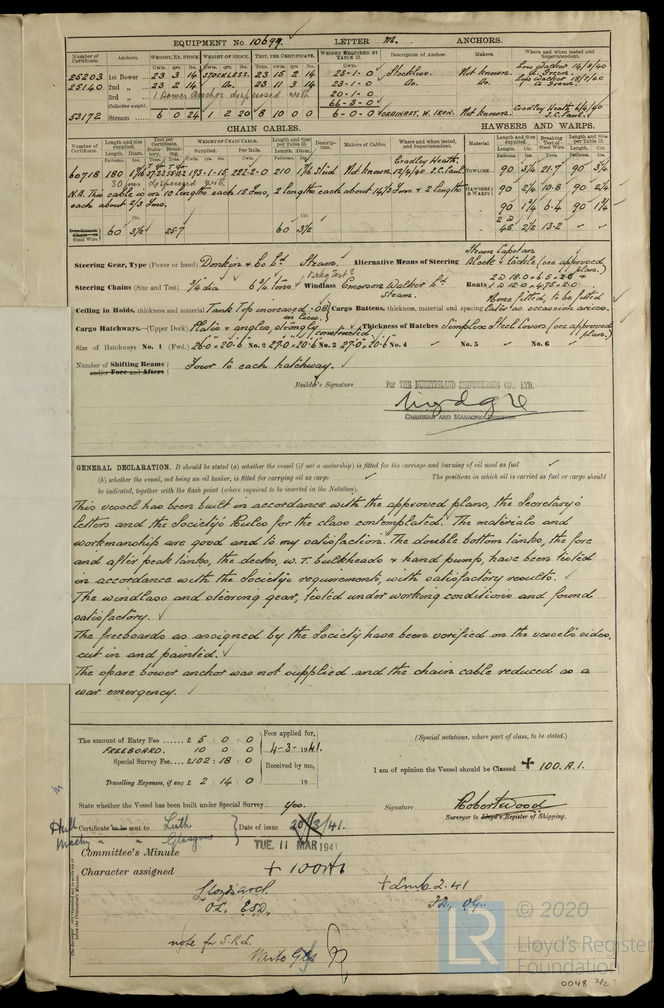 EQUIPMENT No 10699. LETTER M. ANCHORS.
Number of Certificate. Anchors. WEIGHT, EX. STOCK WEIGHT OF STOCK. TEST, PER CERTIFICATE. WEIGHT REQUIRED BY TABLE 31. Description of Anchor. Makers. Where and when tested and Superintendent.
25203 1st Bower ... 23 3 14 STOCKLESS. 23 15 2 14 23-1-0 Stockless. Not known. Low Walker 14/3/40 A. Green.
25140 2nd " ... 23 2 14 Do. 23 11 3 14 23-1-0 Do. Do. Low Walker A. Green.
3rd " 1 Bower Anchor dispensed with 20-1-0
Collective weight. 66-3-0
53172 Stream 6 0 24 1 2 20 8 10 0 0 6-0-0 ORDINARY, W. IRON. Not known. Cradley Heath 6/4/40 S.C. Paul.
CHAIN CABLES. HAWSERS AND WARPS.
60718 180 1 7/16 193-1-15 222-2-0 210 1 7/16 Stud Not known. Cradley Heath. 12/4/40 S.C. Paul TOWLINE. 90 3 1/4 21.7 90 3 1/4
30 fms dispensed with
N.B. This cable is in 10 lengths each 15 fms, 2 lengths each about 14 1/3 fms & 2 lengths each about 2/3 fms. HAWSERS & WARPS 90 2 1/4 10.8 90 2 1/4
" 90 1 3/4 6.4 90 1 3/4
Steel Wire 60 3 1/2 25.7 60 3 1/2 " 45 2 1/2 13.2
Steering Gear, Type (Power or hand) Donkin & Co Ld Steam. Alternative Means of Steering Steam Capstan Block & tackle (see approved plan.)
Steering Chains (Size and Test) 3/4 dia 6 3/4 tons Windlass Emerson Walker Ld Steam. Boats 2 @ 18.0 x 6.5 x 2.6 & 1 @ 12.0 x 4.75 x 2.0
Ceiling in Holds, thickness and material Tank Top increased .08 in lieu. Cargo Battens, thickness, material and spacing None fitted, to be fitted later as occasion arises.
Cargo Hatchways.—(Upper Deck) Plate & angles, strongly constructed Thickness of Hatches Simplex Steel Covers (see approved plan.)
Size of Hatchways No. 1 (Fwd.) 26.0 x 20.6 No. 2 27.0 x 20.6 No. 3 27.0 x 20.6 No. 4 No. 5 No. 6
Number of Shifting Beams and/or Fore and Afters Four to each hatchway.
Builder's Signature For THE BURNTISLAND SHIPBUILDING CO., LTD.
CHAIRMAN AND MANAGING DIRECTOR
GENERAL DECLARATION. It should be stated (a) whether the vessel (if not a motorship) is fitted for the carriage and burning of oil used as fuel
(b) whether the vessel, not being an oil tanker, is fitted for carrying oil as cargo The positions in which oil is carried as fuel or cargo should
be indicated, together with the flash point (where required to be inserted in the Notation).
This vessel has been built in accordance with the approved plans, the Secretary's
letters and the Society's Rules for the class contemplated. The materials and
workmanship are good and to my satisfaction. The double bottom tanks, the fore
and after peak tanks, the decks, W.T. bulkheads & hand pump, have been tested
in accordance with the Society's requirements, with satisfactory results.
The windlass and steering gear, tested under working conditions and found
satisfactory.
The freeboards as assigned by the Society have been verified on the vessel's sides,
cut in and painted.
The spare bower anchor was not supplied and the chain cable reduced as a
war emergency.
The amount of Entry Fee ...... £ 5 : 0 : 0 Fees applied for, (Special notations, where part of class, to be stated.)
FREEBOARD. 10 0 0 4-3-1941.
Special Survey Fee.... £102 : 18 : 0 Received by me, I am of opinion the Vessel should be Classed + 100. A. 1.
Travelling Expenses, if any £ 2 : 14 : 0 19
State whether the Vessel has been built under Special Survey Yes. Signature Robert Wood
Surveyor to Lloyd's Register of Shipping.
Hull Certificate to be sent to Leith Date of issue 20/3/41.
Machy " " Glasgow
TUE. 11 MAR 1941
Committee's Minute
Character assigned + 100A1
Lloyds arch + Lmb. 2. 41
OL. ESD.
note for S.R.L.
Write Gls
LR © 2020
Lloyd's Register
Foundation
0048 2/2